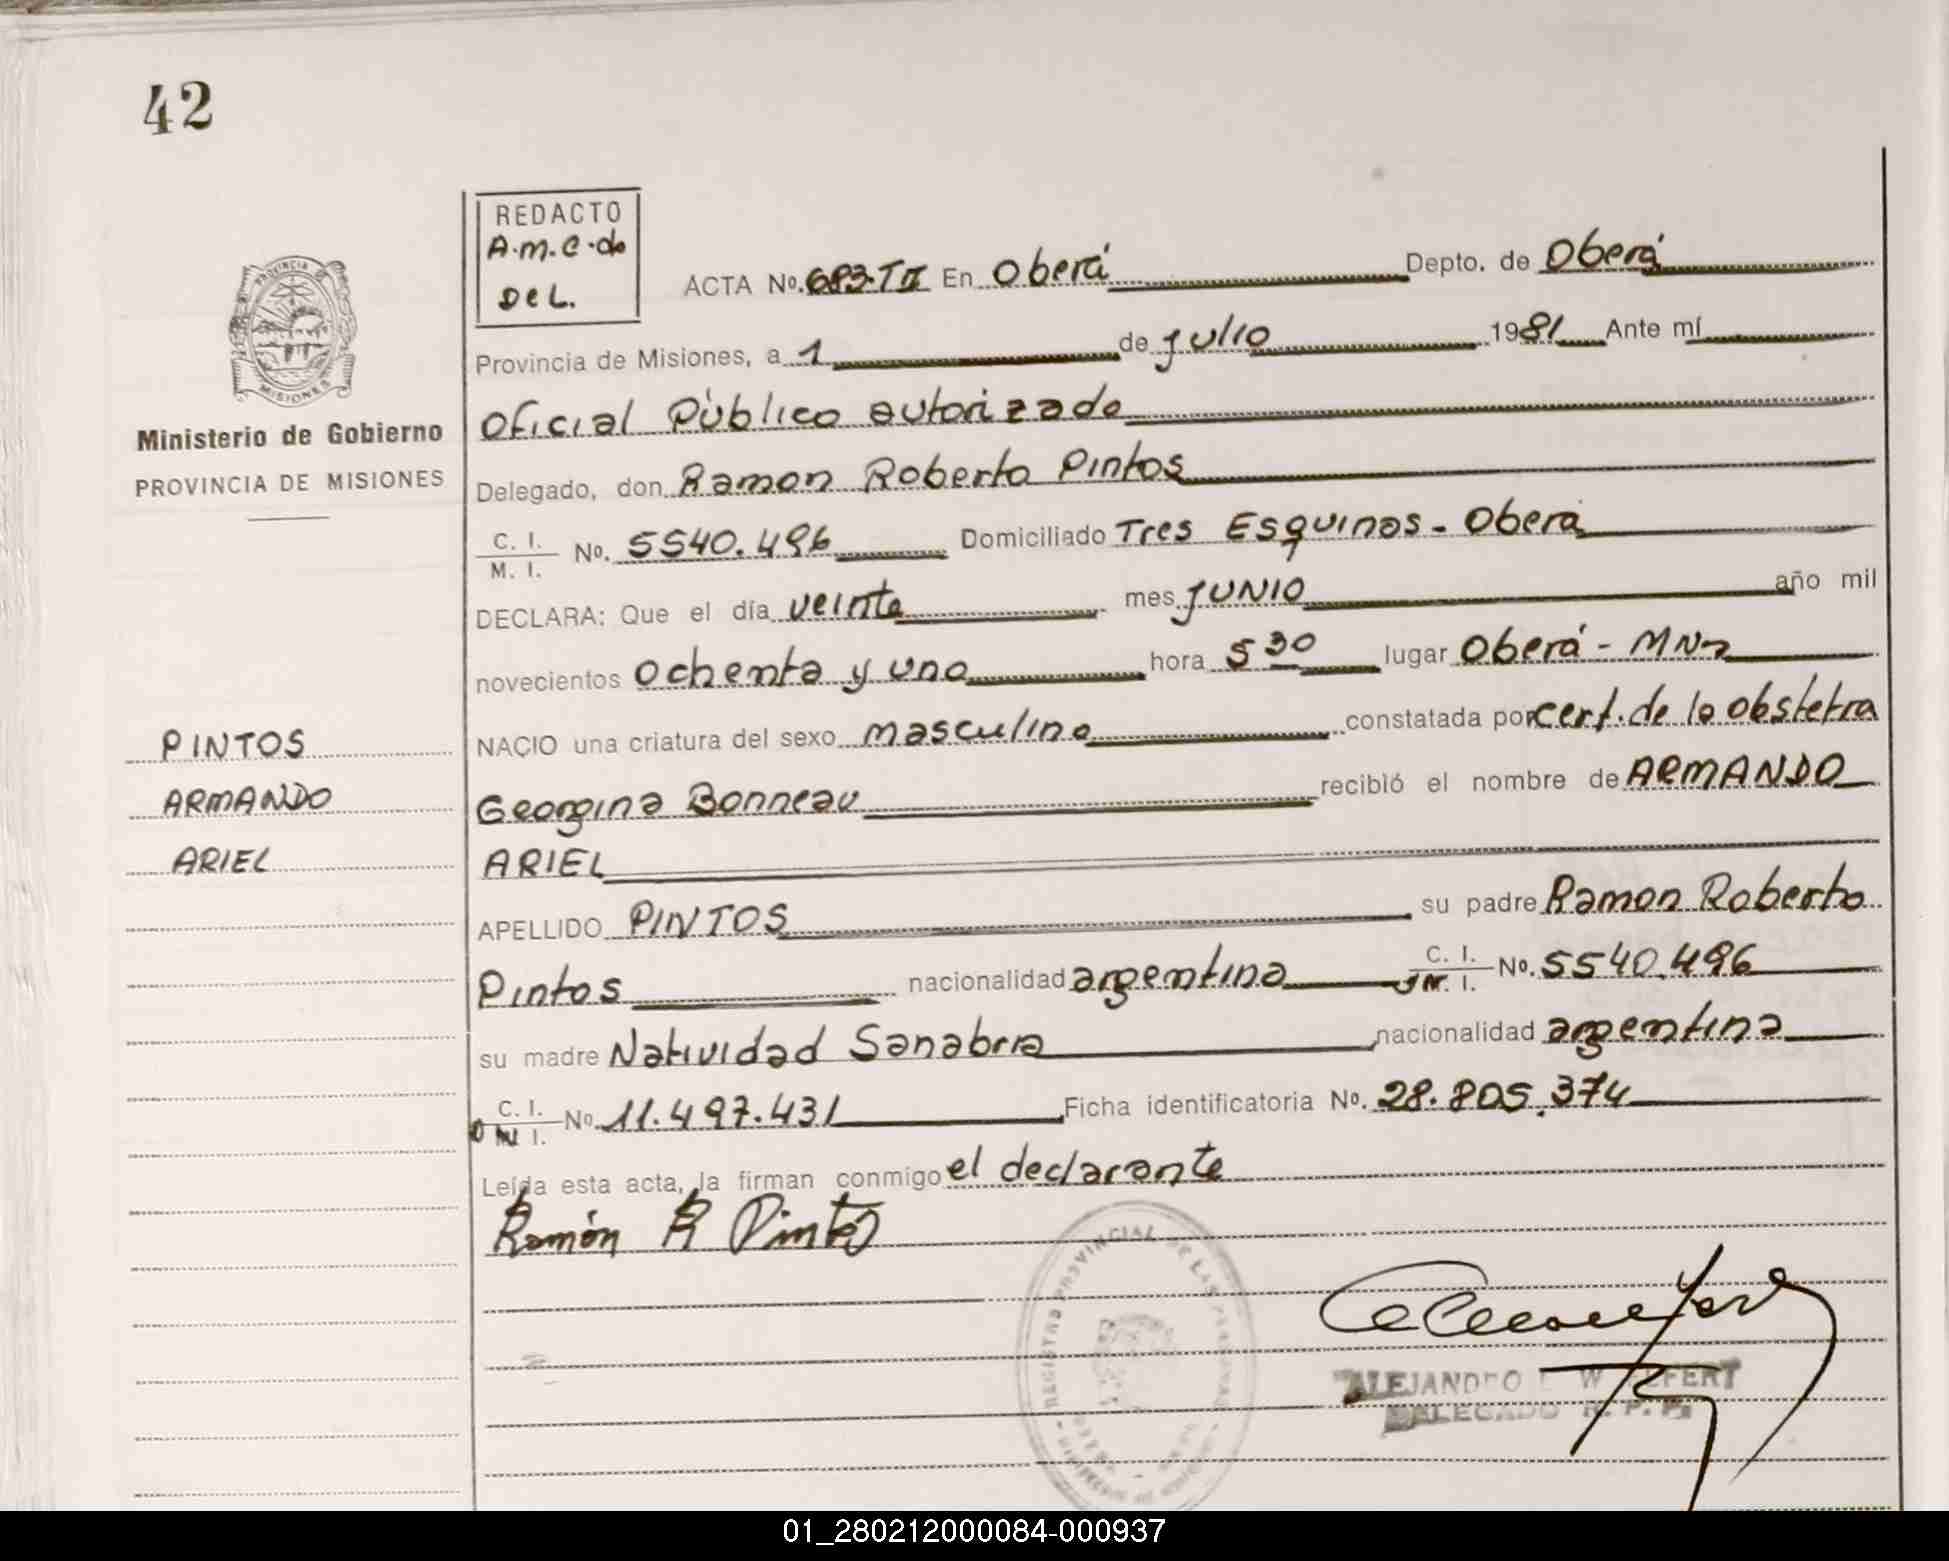 42
REDACTO
A.M.C. de
DEL.
ACTA No. 683-TII En Oberá Depto. de Oberá
Provincia de Misiones, a 1 de julio 1981 Ante mí
Oficial Público autorizado
Delegado, don Ramon Roberto Pintos
C. I. M. I. No. 5540.496 Domiciliado Tres Esquinas - Obera
DECLARA: Que el día veinte mes JUNIO año mil
novecientos ochenta y uno hora 5 30 lugar Oberá - MNes
NACIO una criatura del sexo masculino constatada por cert. de la obstetra
Georgina Bonneau recibió el nombre de ARMANDO
ARIEL
APELLIDO PINTOS su padre Ramon Roberto
Pintos nacionalidad argentina C. I. No. 5540.496
su madre Natividad Sanabria nacionalidad argentina
C. I. No. 11.497.431 Ficha identificatoria No. 28.805.374
Leída esta acta, la firman conmigo el declarante
Ramón R Pintos
PROVINCIA
MISIONES
Ministerio de Gobierno
PROVINCIA DE MISIONES
PINTOS
ARMANDO
ARIEL
REGISTRO PROVINCIAL DE LAS PERSONAS
ALEJANDRO
DELEGADO R. P. P.
01_280212000084-000937